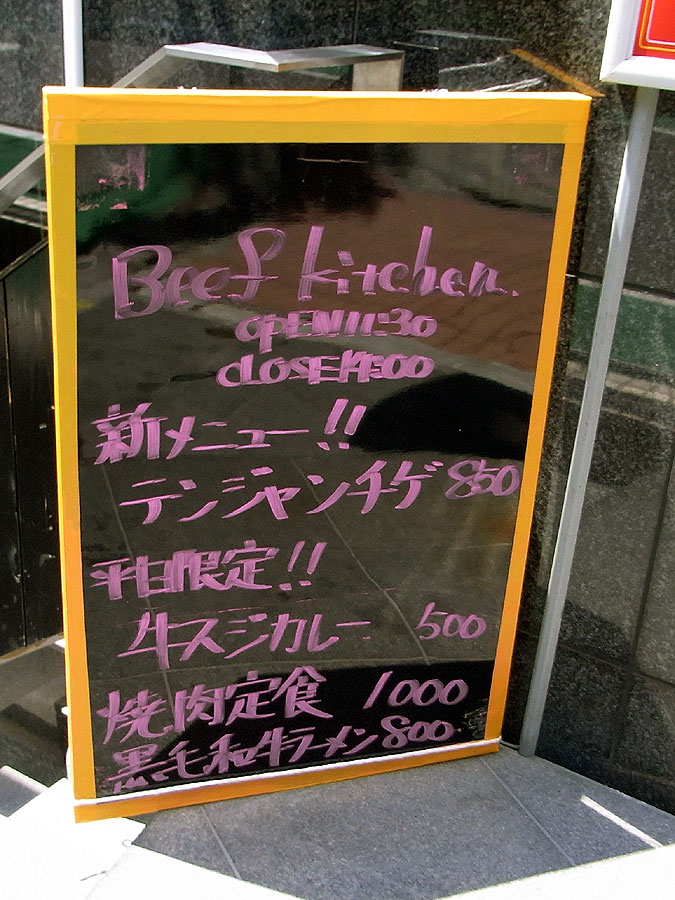 Beef kitchen.
OPEN 11:30
CLOSE 14:00
新メニュー!!
テンジャンチゲ 850
平日限定!!
牛スジカレー 500
焼肉定食 1000
黒毛和牛ラーメン 800